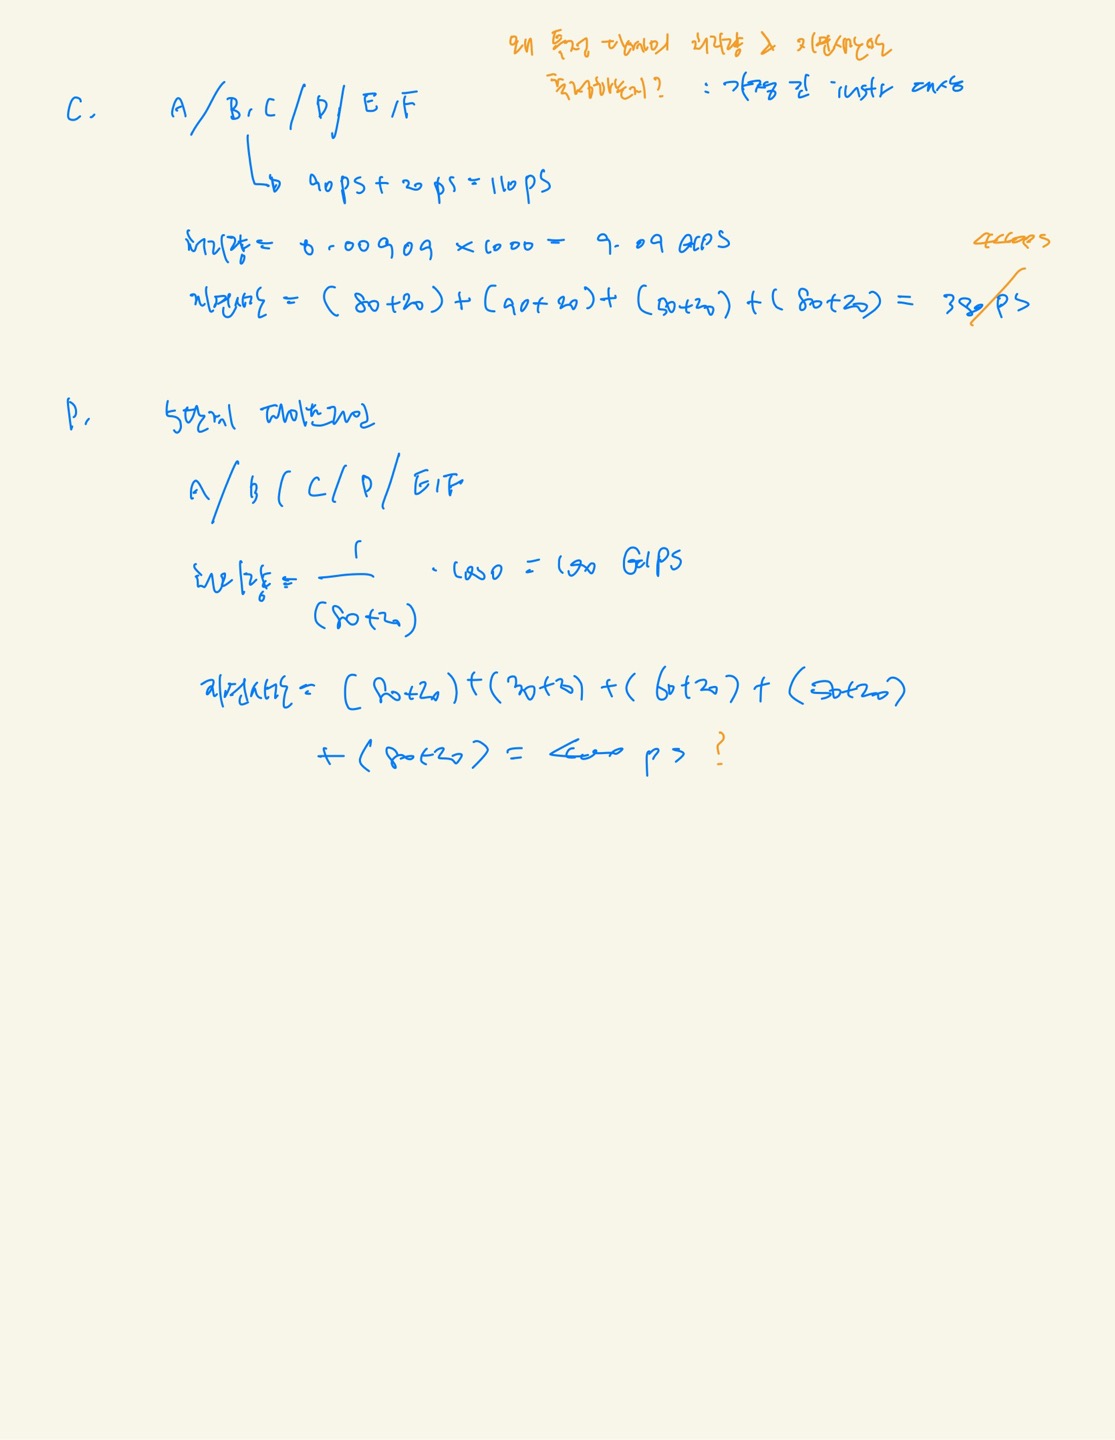 왜 특정 단계의 처리량 & 지연시간을
측정하는지? : 가장 긴 instr 대상
C. A / B, C / D / E, F
90ps + 20ps = 110ps
처리량 = 0.00909 × 1000 = 9.09 GIPS
440ps
지연시간 = (80+20) + (90+20) + (50+20) + (80+20) = 380ps
D. 5단계 파이프라인
A / B / C / D / E, F
처리량 = 1 / (80+20) · 1000 = 100 GIPS
지연시간 = (80+20) + (30+20) + (60+20) + (50+20)
+ (80+20) = ps ?